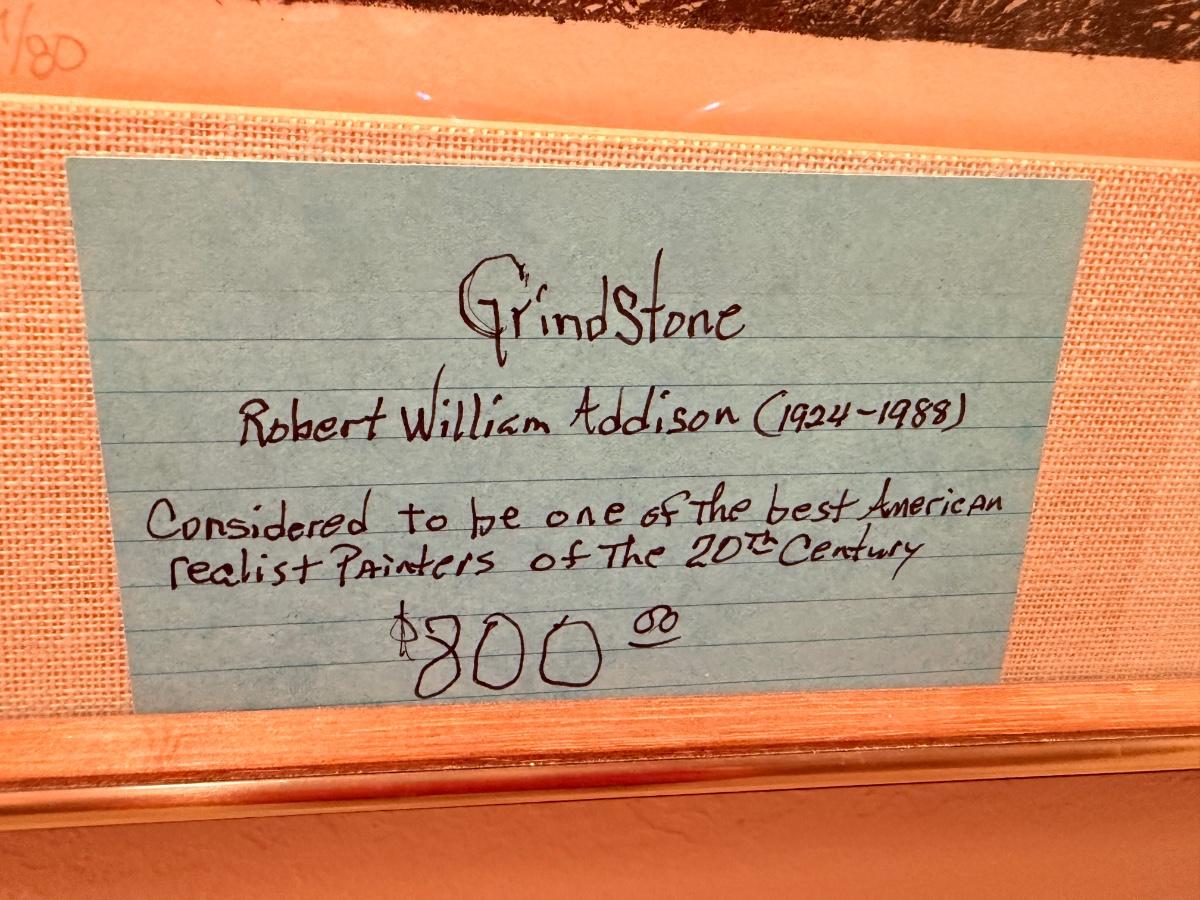 /80
GrindStone
Robert William Addison (1924-1988)
Considered to be one of the best American
realist Painters of The 20th Century
$800 00